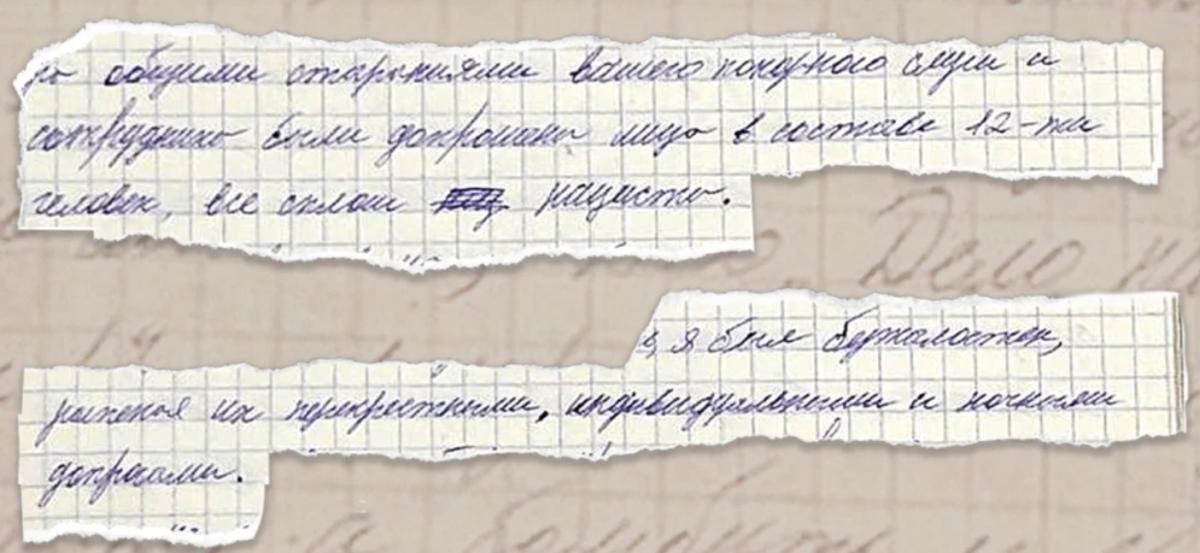 общими стараниями вашего покорного слуги и
сотрудников были допрошены лица в составе 12-ти
человек, все сплош нацисты.
я был безжалостен,
их перекрестными, индивидуальными и ночными
допросами.
Дело